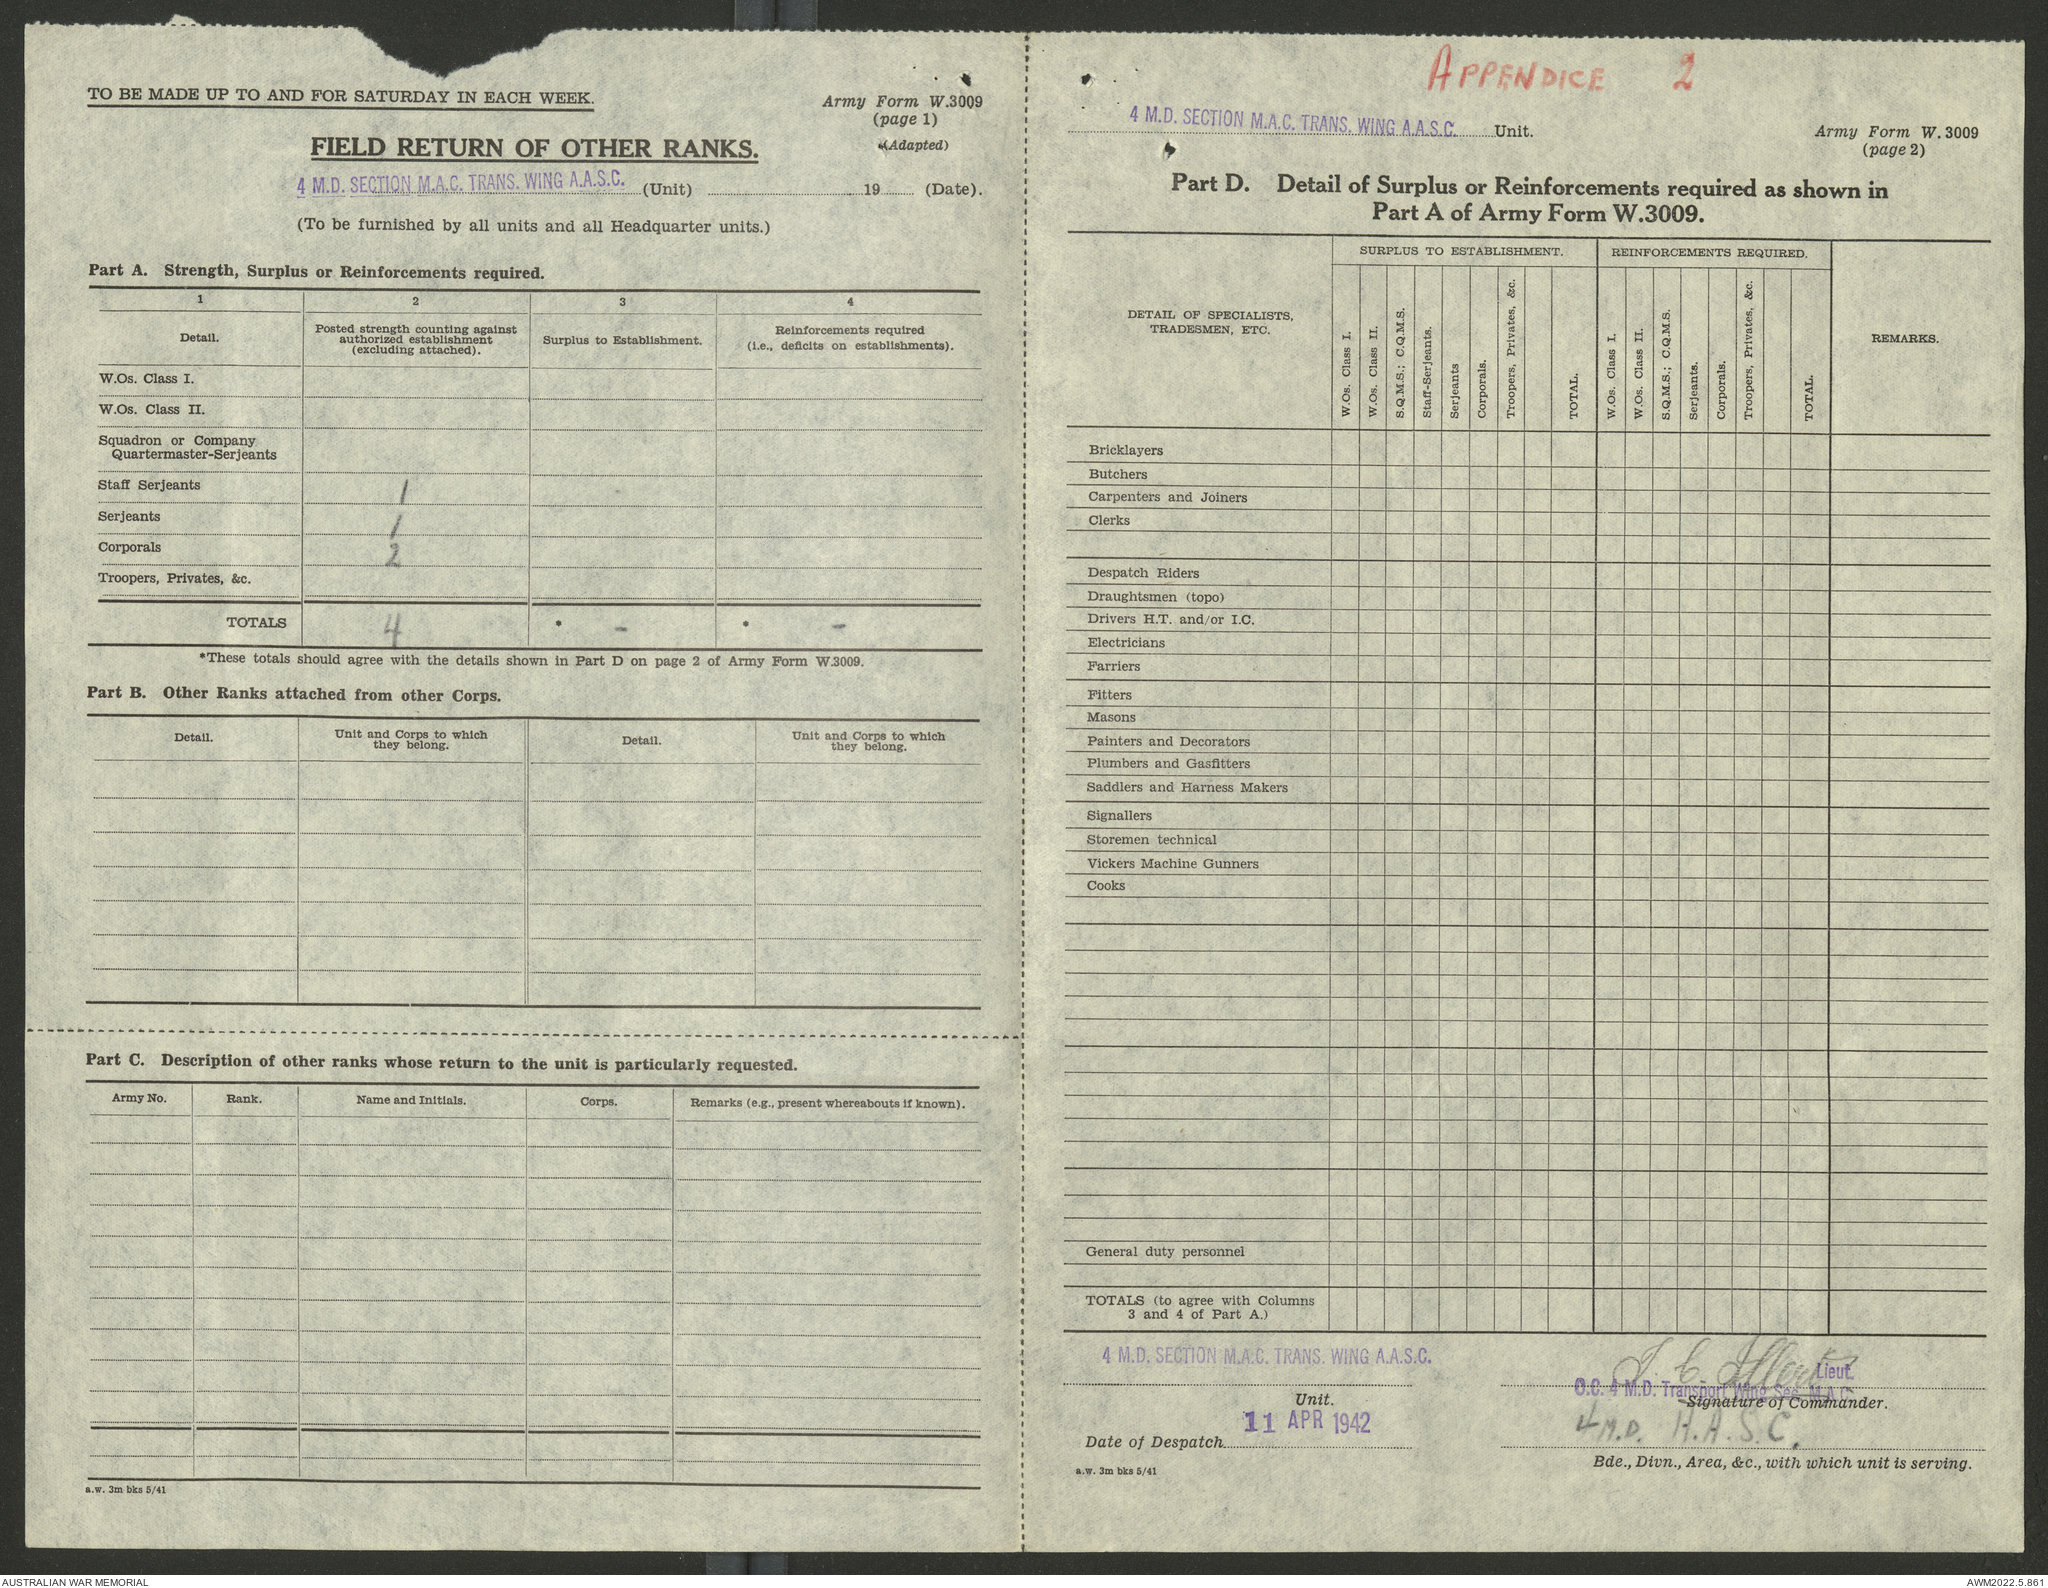 TO BE MADE UP TO AND FOR SATURDAY IN EACH WEEK.
Army Form W.3009
(page 1)
(Adapted)
FIELD RETURN OF OTHER RANKS.
4 M.D. SECTION M.A.C. TRANS. WING A.A.S.C. (Unit) 19 (Date).
(To be furnished by all units and all Headquarter units.)
Part A. Strength, Surplus or Reinforcements required.
1 2 3 4
Detail.
Posted strength counting against authorized establishment (excluding attached).
Surplus to Establishment.
Reinforcements required (i.e., deficits on establishments).
W.Os. Class I.
W.Os. Class II.
Squadron or Company
Quartermaster-Serjeants
Staff Serjeants 1
Serjeants 1
Corporals 2
Troopers, Privates, &c.
TOTALS 4 * - * -
*These totals should agree with the details shown in Part D on page 2 of Army Form W.3009.
Part B. Other Ranks attached from other Corps.
Detail.
Unit and Corps to which they belong.
Detail.
Unit and Corps to which they belong.
Part C. Description of other ranks whose return to the unit is particularly requested.
Army No. Rank. Name and Initials. Corps. Remarks (e.g., present whereabouts if known).
a.w. 3m bks 5/41
APPENDICE 2
4 M.D. SECTION M.A.C. TRANS. WING A.A.S.C. Unit.
Army Form W.3009
(page 2)
Part D. Detail of Surplus or Reinforcements required as shown in
Part A of Army Form W.3009.
DETAIL OF SPECIALISTS,
TRADESMEN, ETC.
SURPLUS TO ESTABLISHMENT.
W.Os. Class I.
W.Os. Class II.
S.Q.M.S.; C.Q.M.S.
Staff-Serjeants.
Serjeants
Corporals.
Troopers, Privates, &c.
TOTAL.
REINFORCEMENTS REQUIRED.
W.Os. Class I.
W.Os. Class II.
S.Q.M.S.; C.Q.M.S.
Serjeants.
Corporals.
Troopers, Privates, &c.
TOTAL.
REMARKS.
Bricklayers
Butchers
Carpenters and Joiners
Clerks
Despatch Riders
Draughtsmen (topo)
Drivers H.T. and/or I.C.
Electricians
Farriers
Fitters
Masons
Painters and Decorators
Plumbers and Gasfitters
Saddlers and Harness Makers
Signallers
Storemen technical
Vickers Machine Gunners
Cooks
General duty personnel
TOTALS (to agree with Columns
3 and 4 of Part A.)
4 M.D. SECTION M.A.C. TRANS. WING A.A.S.C.
Unit.
11 APR 1942
Date of Despatch
a.w. 3m bks 5/41
Lieut.
O.C. 4 M.D. Transport Wing Sec. M.A.C.
Signature of Commander.
4 M.D. A.A.S.C.
Bde., Divn., Area, &c., with which unit is serving.
AUSTRALIAN WAR MEMORIAL
AWM2022.5.861